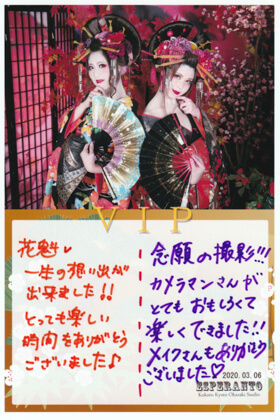 VIP
花魁♥
一生の想い出が
出来ました!!
とっても楽しい
時間をありがとう
ございました♪
念願の撮影!!!
カメラマンさんが
とてもおもしろくて
楽しくできました!!
メイクさんもありがとう
ございました♡
2020.03.06
ESPERANTO